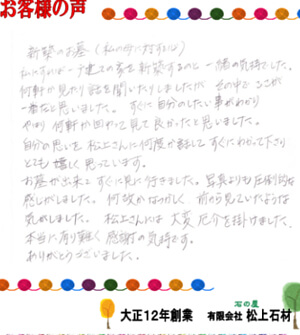 お客様の声
新築のお墓(私の母に対すれば)
私にすれば一戸建ての家を新築するのと一緒の気持でした。
何軒か見たり話を聞いたりしましたが その中でここが
一番だと思いました。すぐに自分のしたい事がわかり
やはり何軒か回やって見て良かったと思いました。
自分の思いを松上さんに何度か話してすぐにわかって下さり
とても嬉しく思っています。
お墓が出来てすぐに見に行きました。写真よりも圧倒的な
感じがしました。何故かなつかしく 前から見ていたような
気がしました。松上さんには 大変 厄介を掛けました。
本当に有り難く 感謝の気持です。
ありがとうございました。
石の屋
大正12年創業 有限会社 松上石材